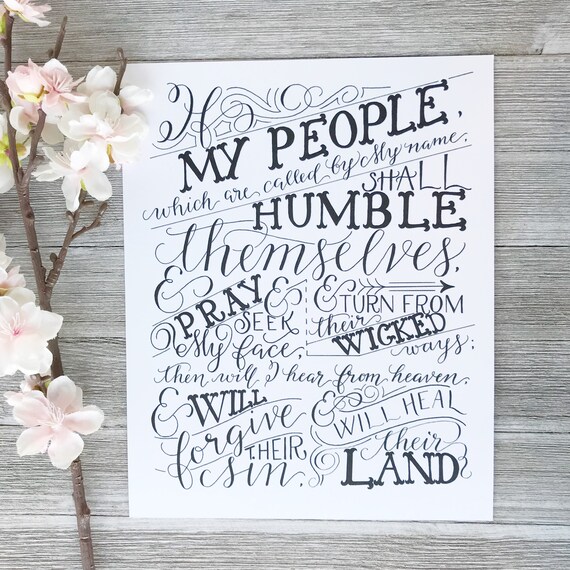 If
MY PEOPLE,
which are called by My name,
SHALL
HUMBLE
themselves,
& PRAY &
SEEK
My face,
& TURN FROM
their
WICKED
ways;
then will I hear from heaven,
& WILL
forgive
THEIR
sin,
& WILL HEAL
their
LAND